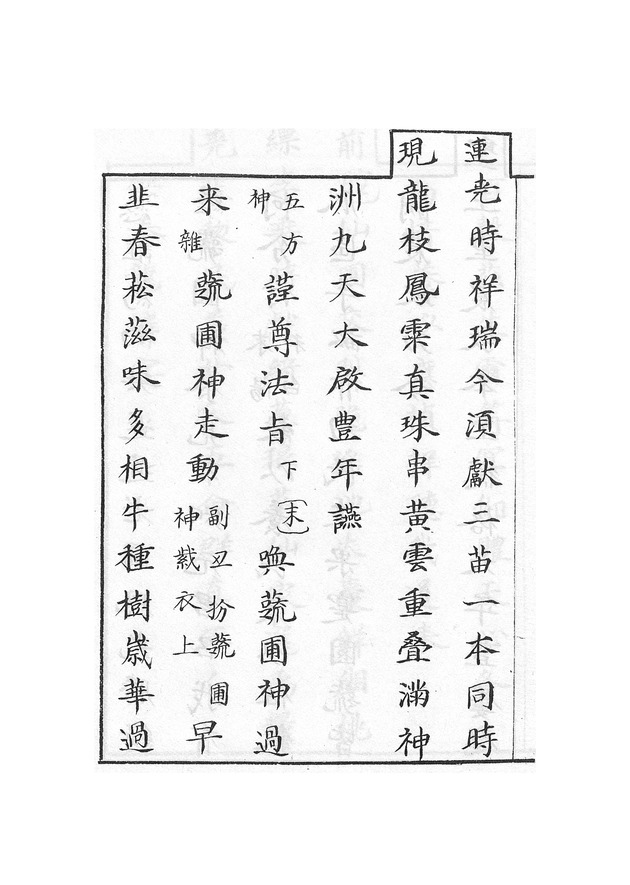 連尭時祥瑞今湏獻三苗一本同時
現龍枝鳳粟真珠串黄雲重叠滿神
洲九天大啟豊年讌
五方神謹尊法旨下(末)喚蔬圃神過
来雜蔬圃神走動副丑扮蔬圃神戴衣上早
韭春菘滋味多相牛種樹歳華過